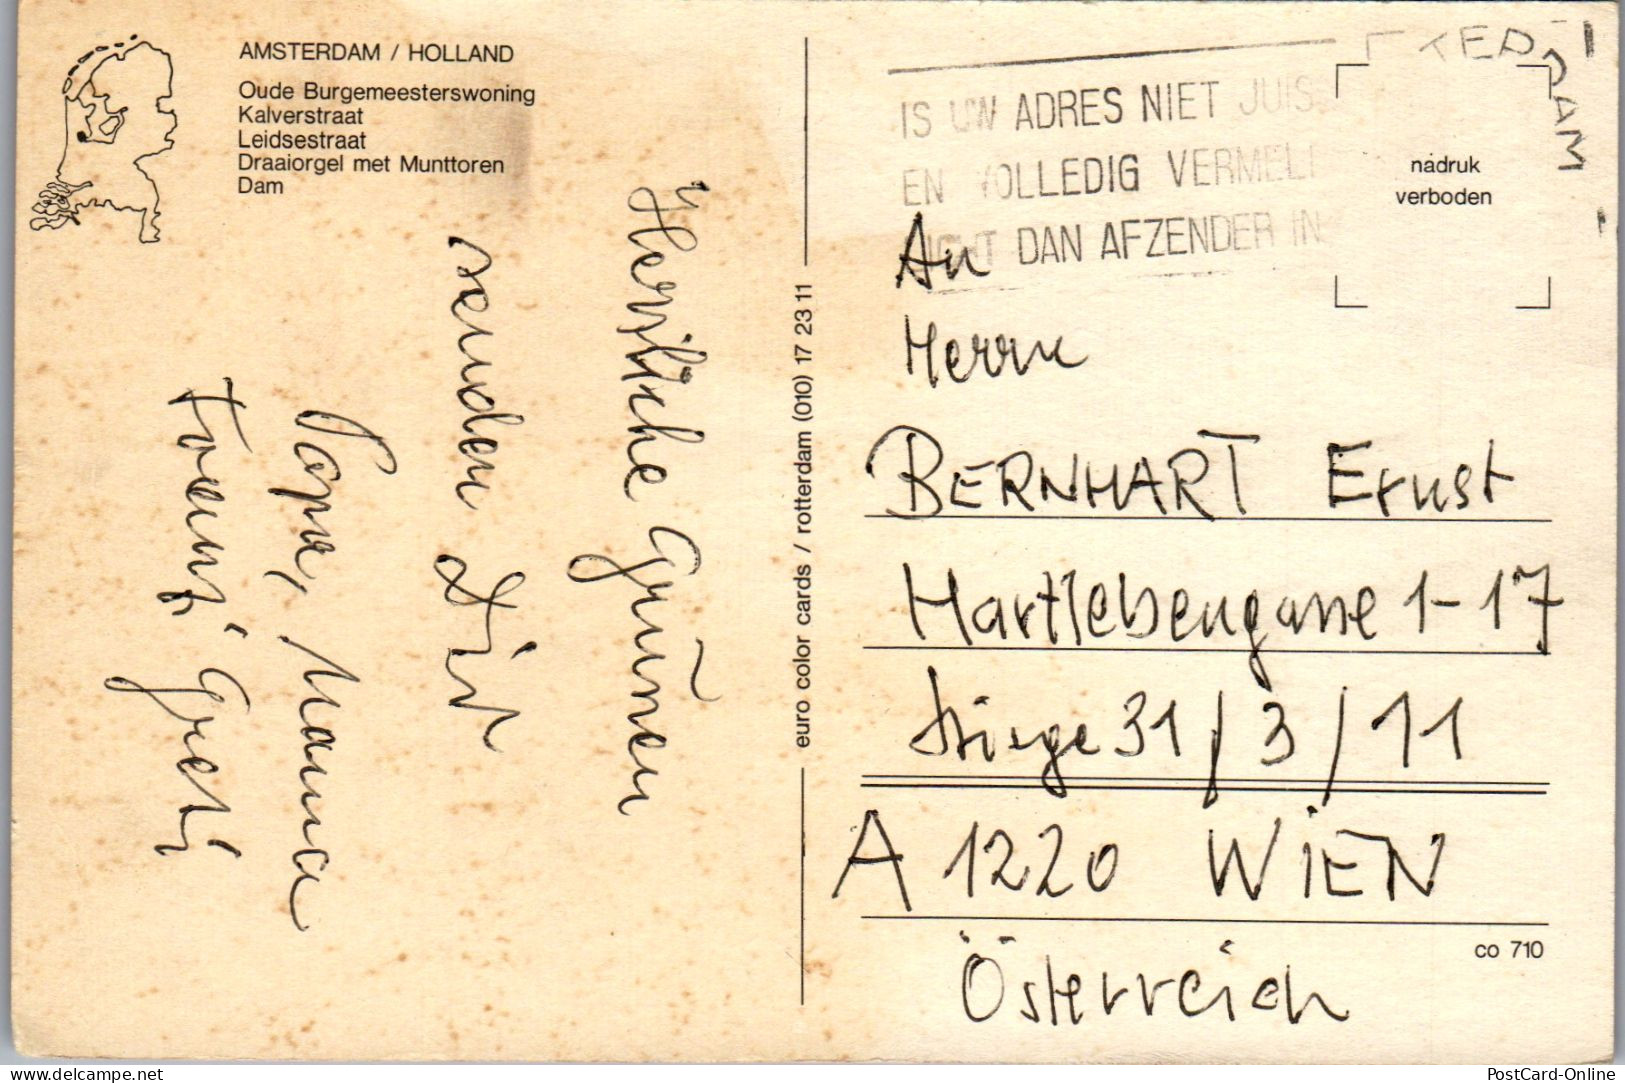 AMSTERDAM / HOLLAND
Oude Burgemeesterswoning
Kalverstraat
Leidsestraat
Draaiorgel met Munttoren
Dam
Herzliche Grüße
senden Dir
Papa, Mama
Franzi, Greti
euro color cards / rotterdam (010) 17 23 11
IS UW ADRES NIET JUIS
EN VOLLEDIG VERMEL
DAN AFZENDER IN
TERDAM
nadruk
verboden
An
Herrn
BERNHART Ernst
Hartlebengasse 1-17
Stiege 31/3/11
A 1220 WIEN
Österreich
co 710
www.delcampe.net
PostCard-Online